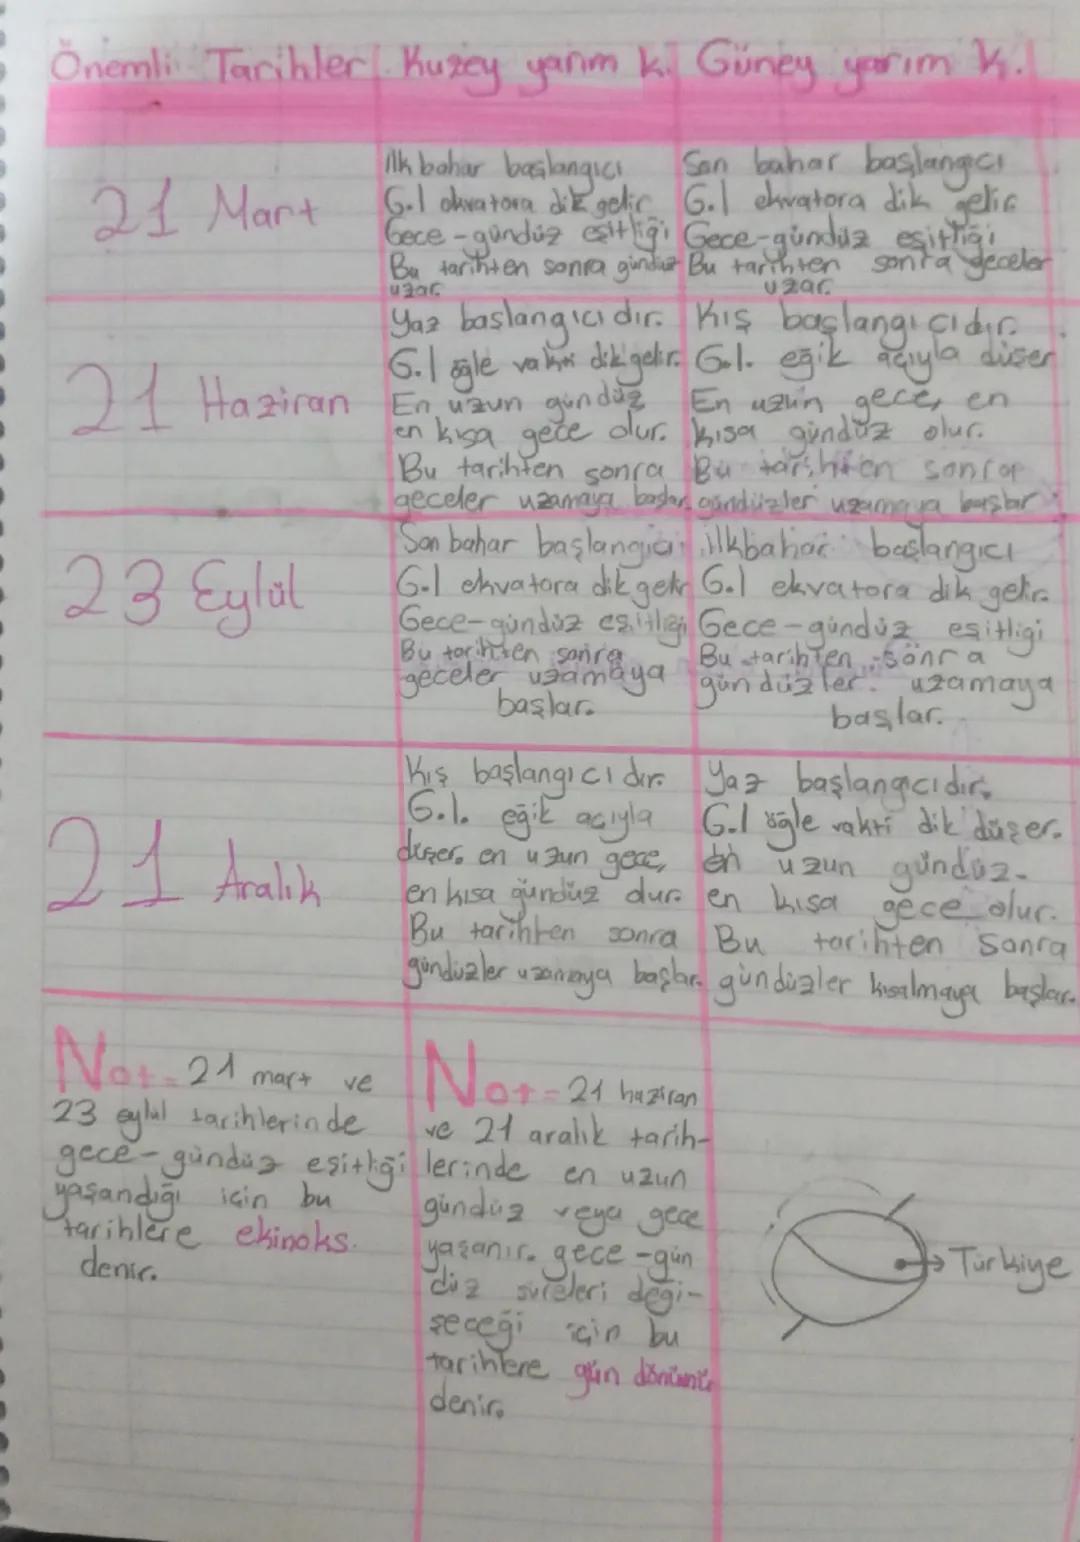 Önemli Tarihler Kuzey yarım k. Güney yarım k.
21 Mart
ilk bahar başlangıcı
G.I ekvatora dik gelir
Gece-gündüz eşitliği
Bu tarihten sonra gündüz
uzar.
Son bahar başlangıcı
G.I ekvatora dik gelir
Gece-gündüz eşitliği
Bu tarihten sonra geceler
uzar.
21 Haziran
Yaz başlangıcıdır.
G.I öğle vakti dik gelir.
En uzun gündüz
en kısa gece olur.
Bu tarihten sonra
geceler uzamaya başlar
Kış başlangıcıdır.
G.I. eğik açıyla düşer
En uzun gece, en
kısa gündüz olur.
Bu tarihten sonra
gündüzler uzamaya başlar
23 Eylül
Son bahar başlangıcı
G.I ekvatora dik gelir
Gece-gündüz eşitliği
Bu tarihten sonra
geceler uzamaya
başlar.
ilkbahar başlangıcı
G.I ekvatora dik gelir.
Gece-gündüz eşitligi
Bu tarihten sonra
gündüzler uzamaya
başlar.
21 Aralık
Kış başlangıcıdır.
G.I. eğik açıyla
düşer. en uzun gece,
en kısa gündüz olur.
Bu tarihten sonra
gündüzler uzamaya başlar.
Yaz başlangıcıdır.
G.I öğle vakti dik düşer.
en uzun gündüz.
en kısa gece olur.
Bu tarihten sonra
gündüzler kısalmaya başlar.
Not- 21 mart ve
23 eylül tarihlerinde
gece-gündüz eşitliği
yaşandığı için bu
tarihlere ekinoks.
denir.
Not- 21 haziran
ve 21 aralık tarih-
lerinde en uzun
gündüz veya gece
yaşanır. gece-gün
düz süreleri deği-
şeceği için bu
tarihlere gün dönümü
denir.
Türkiye